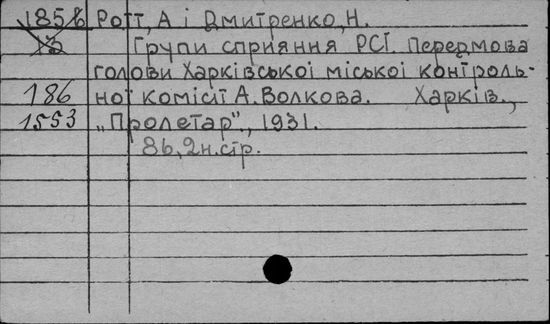 Ротт, А і Дмитренко, Н.
Групи сприяння РСІ. Передмова
голови Харківської міської контроль-
186 ної комісії А. Волкова. Харків.,
1553 „Пролетар"., 1931.
86, 2н.стр.